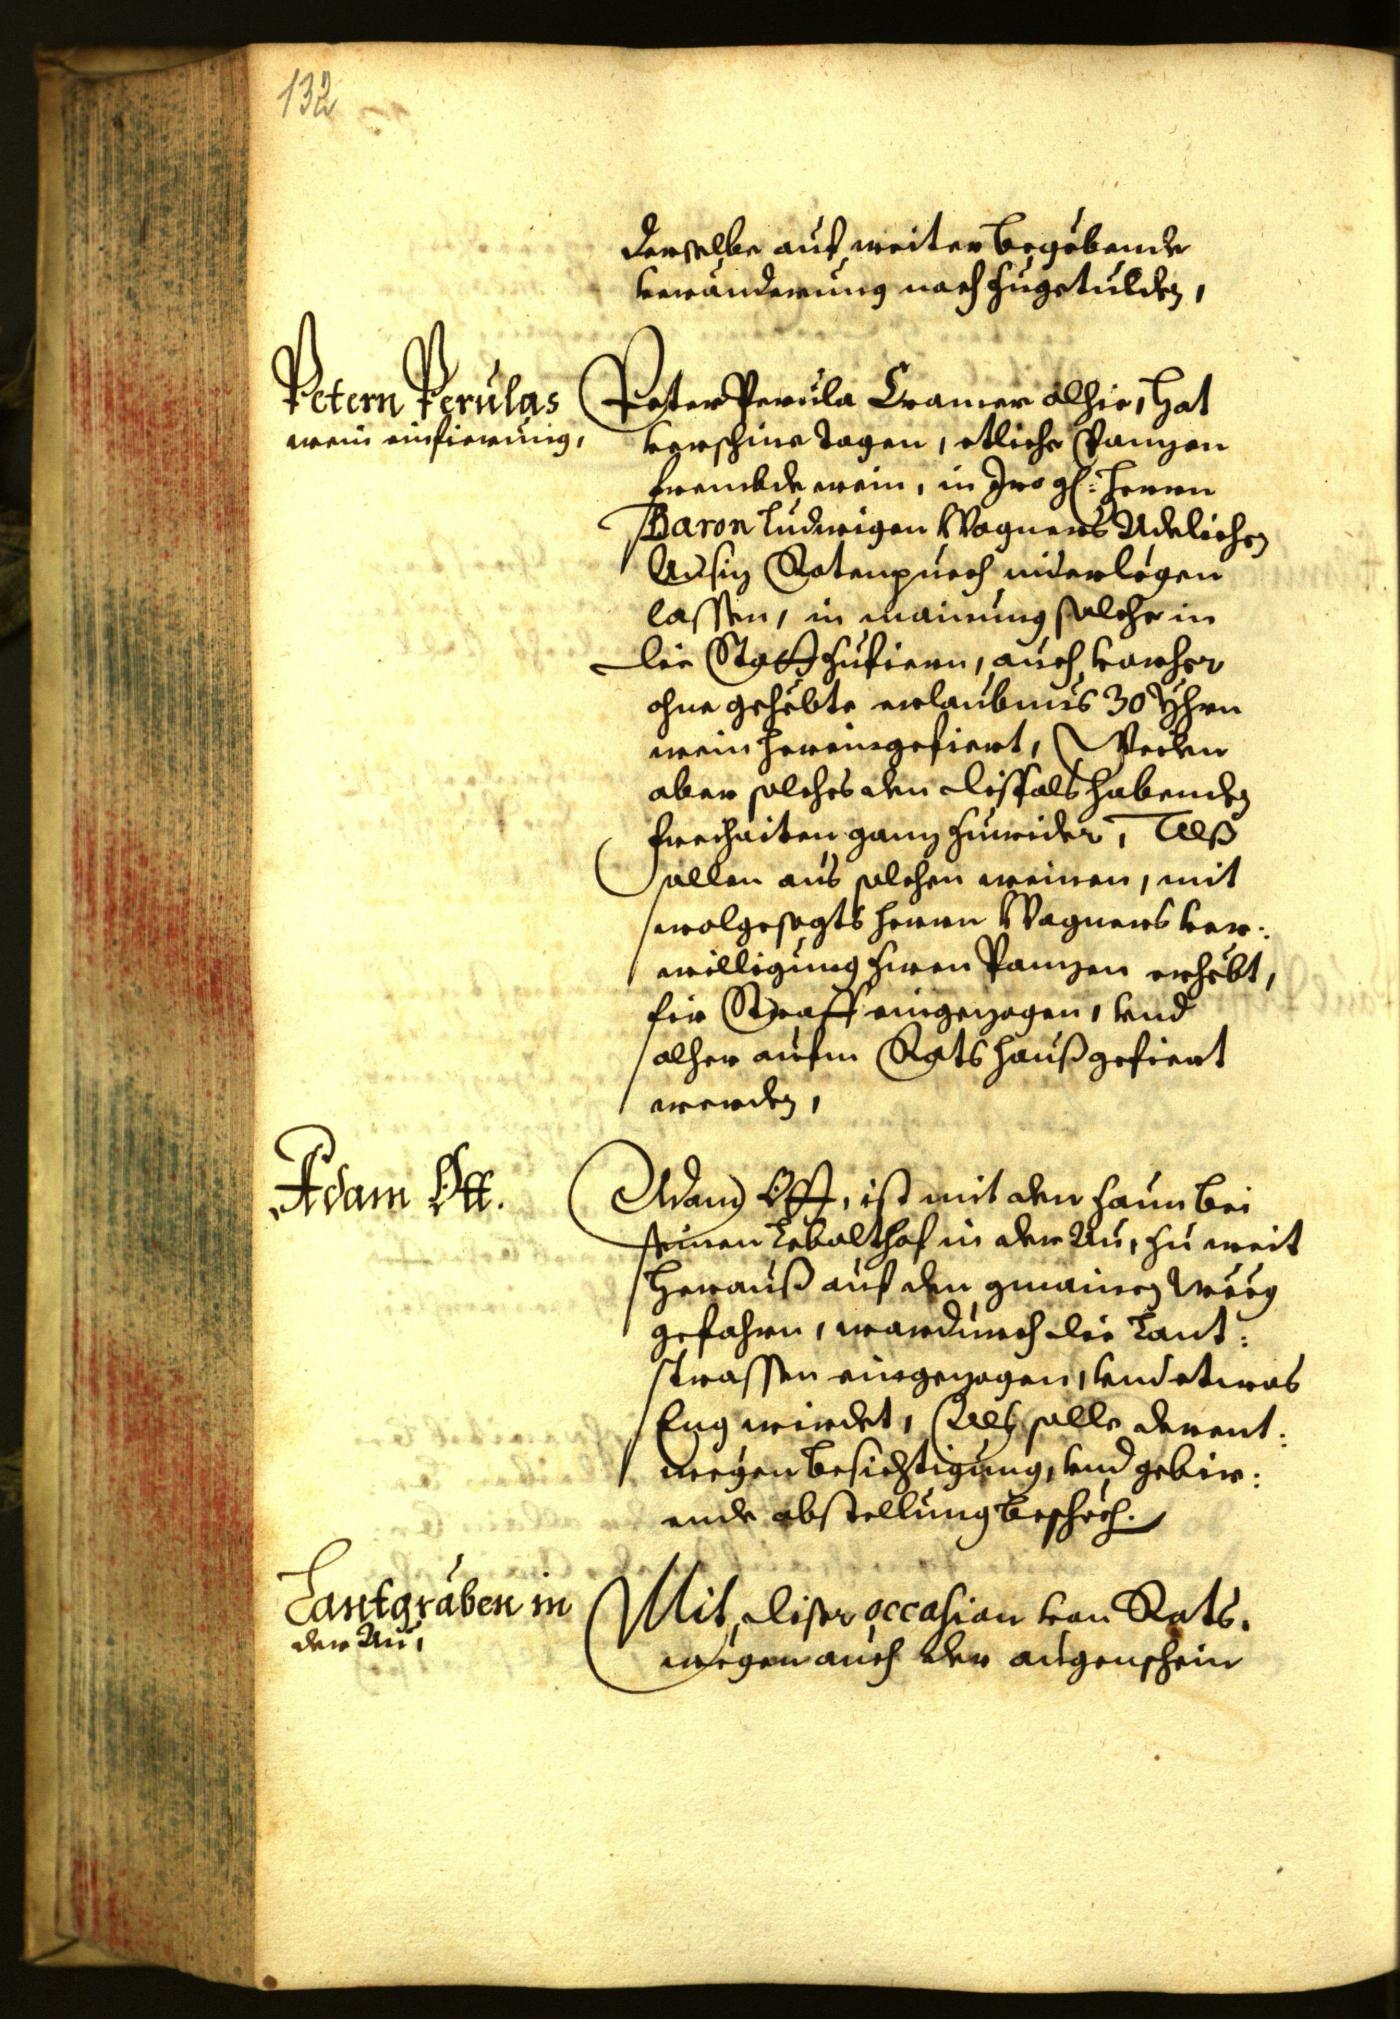 132
derselbe auf weiter begebende
veränderung nach zugetulden,
Petern Perulas
wein einfierung,
Peter Perula Cramer alhie, hat
verschine tagen, etliche Panzen
frembde wein, in Iro gl: herrn
Baron Ludwigen Wagners Adelichen
Ansiz Rotenpuech niderlegen
lassen, in mainung solche in
die Statt zufiern, auch vorher
ohne gehebte erlaubnus 30 Yhrn
wein hereingefiert, Weilen
aber solches den dissfals habenden
freihaiten ganz zuwider, Alß
sollen aus solchen weinen, mit
wolgesagts herrn Wagners ver:
willigung zwen Panzen erhebt,
für Straff eingezogen, vnd
alher aufm Ratshauß gefiert
werden,
Adam Ott.
Adam Ott, ist mit den zaun bei
seinen Kebalthof in der Au, zu weit
herauß auf den gmainen Weeg
gefahrn, wardurch die Lant:
strassen eingezogen, vnd etwas
Eng wirdet, Als solle derent:
wegen besichtigung, vnd gebir:
ende abstellung beschech.
Lantgräben in
der Au,
Mit diser occasion von Rats.
wegen auch der augenschein